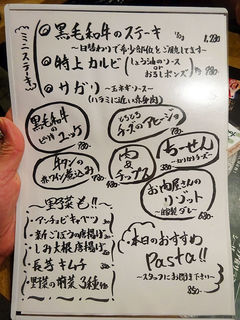 ミニステーキ
◎黒毛和牛のステーキ 1,280
〜日替わりで希少部位をご用意してます〜
◎特上カルビ (しょう油のソース or おろしポンズ)
◎サガリ 〜玉ネギソース〜
(ハラミに近い赤身肉)
黒毛和牛の
ユッケ
とろとろ
チーズのアヒージョ
780
牛タンの
赤ワイン煮込み
肉&
チップス
ちーせん
お肉屋さんの
リゾット
〜自家製グレービー〜
〜野菜も!!〜
・アンチョビキャベツ
・新ごぼうの唐揚げ
・しみ大根唐揚げ
・長芋キムチ
・野菜の前菜3種
本日のおすすめ
Pasta!!
〜スタッフにお聞き下さい〜
850-